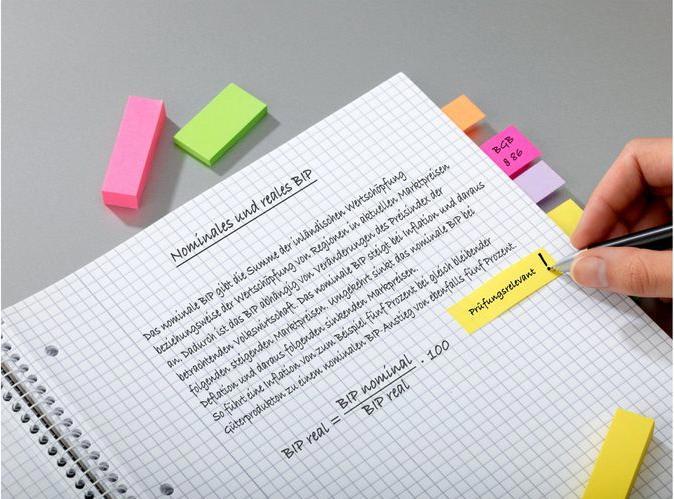 Nominales und reales BIP
Das nominale BIP gibt die Summe der inländischen Wertschöpfung
beziehungsweise der Wertschöpfung von Regionen in aktuellen Marktpreisen
an. Dadurch ist das BIP abhängig von Veränderungen des Preisindex der
betrachtenden Volkswirtschaft. Das nominale BIP steigt bei Inflation und daraus
folgenden steigenden Marktpreisen. Umgekehrt sinkt das nominale BIP bei
Deflation und daraus folgenden sinkenden Marktpreisen.
So führt eine Inflation von zum Beispiel fünf Prozent bei gleich bleibender
Güterproduktion zu einem nominalen BIP-Anstieg von ebenfalls fünf Prozent
BIP real = BIP nominal / BIP real · 100
BGB
§ 86
Prüfungsrelevant !